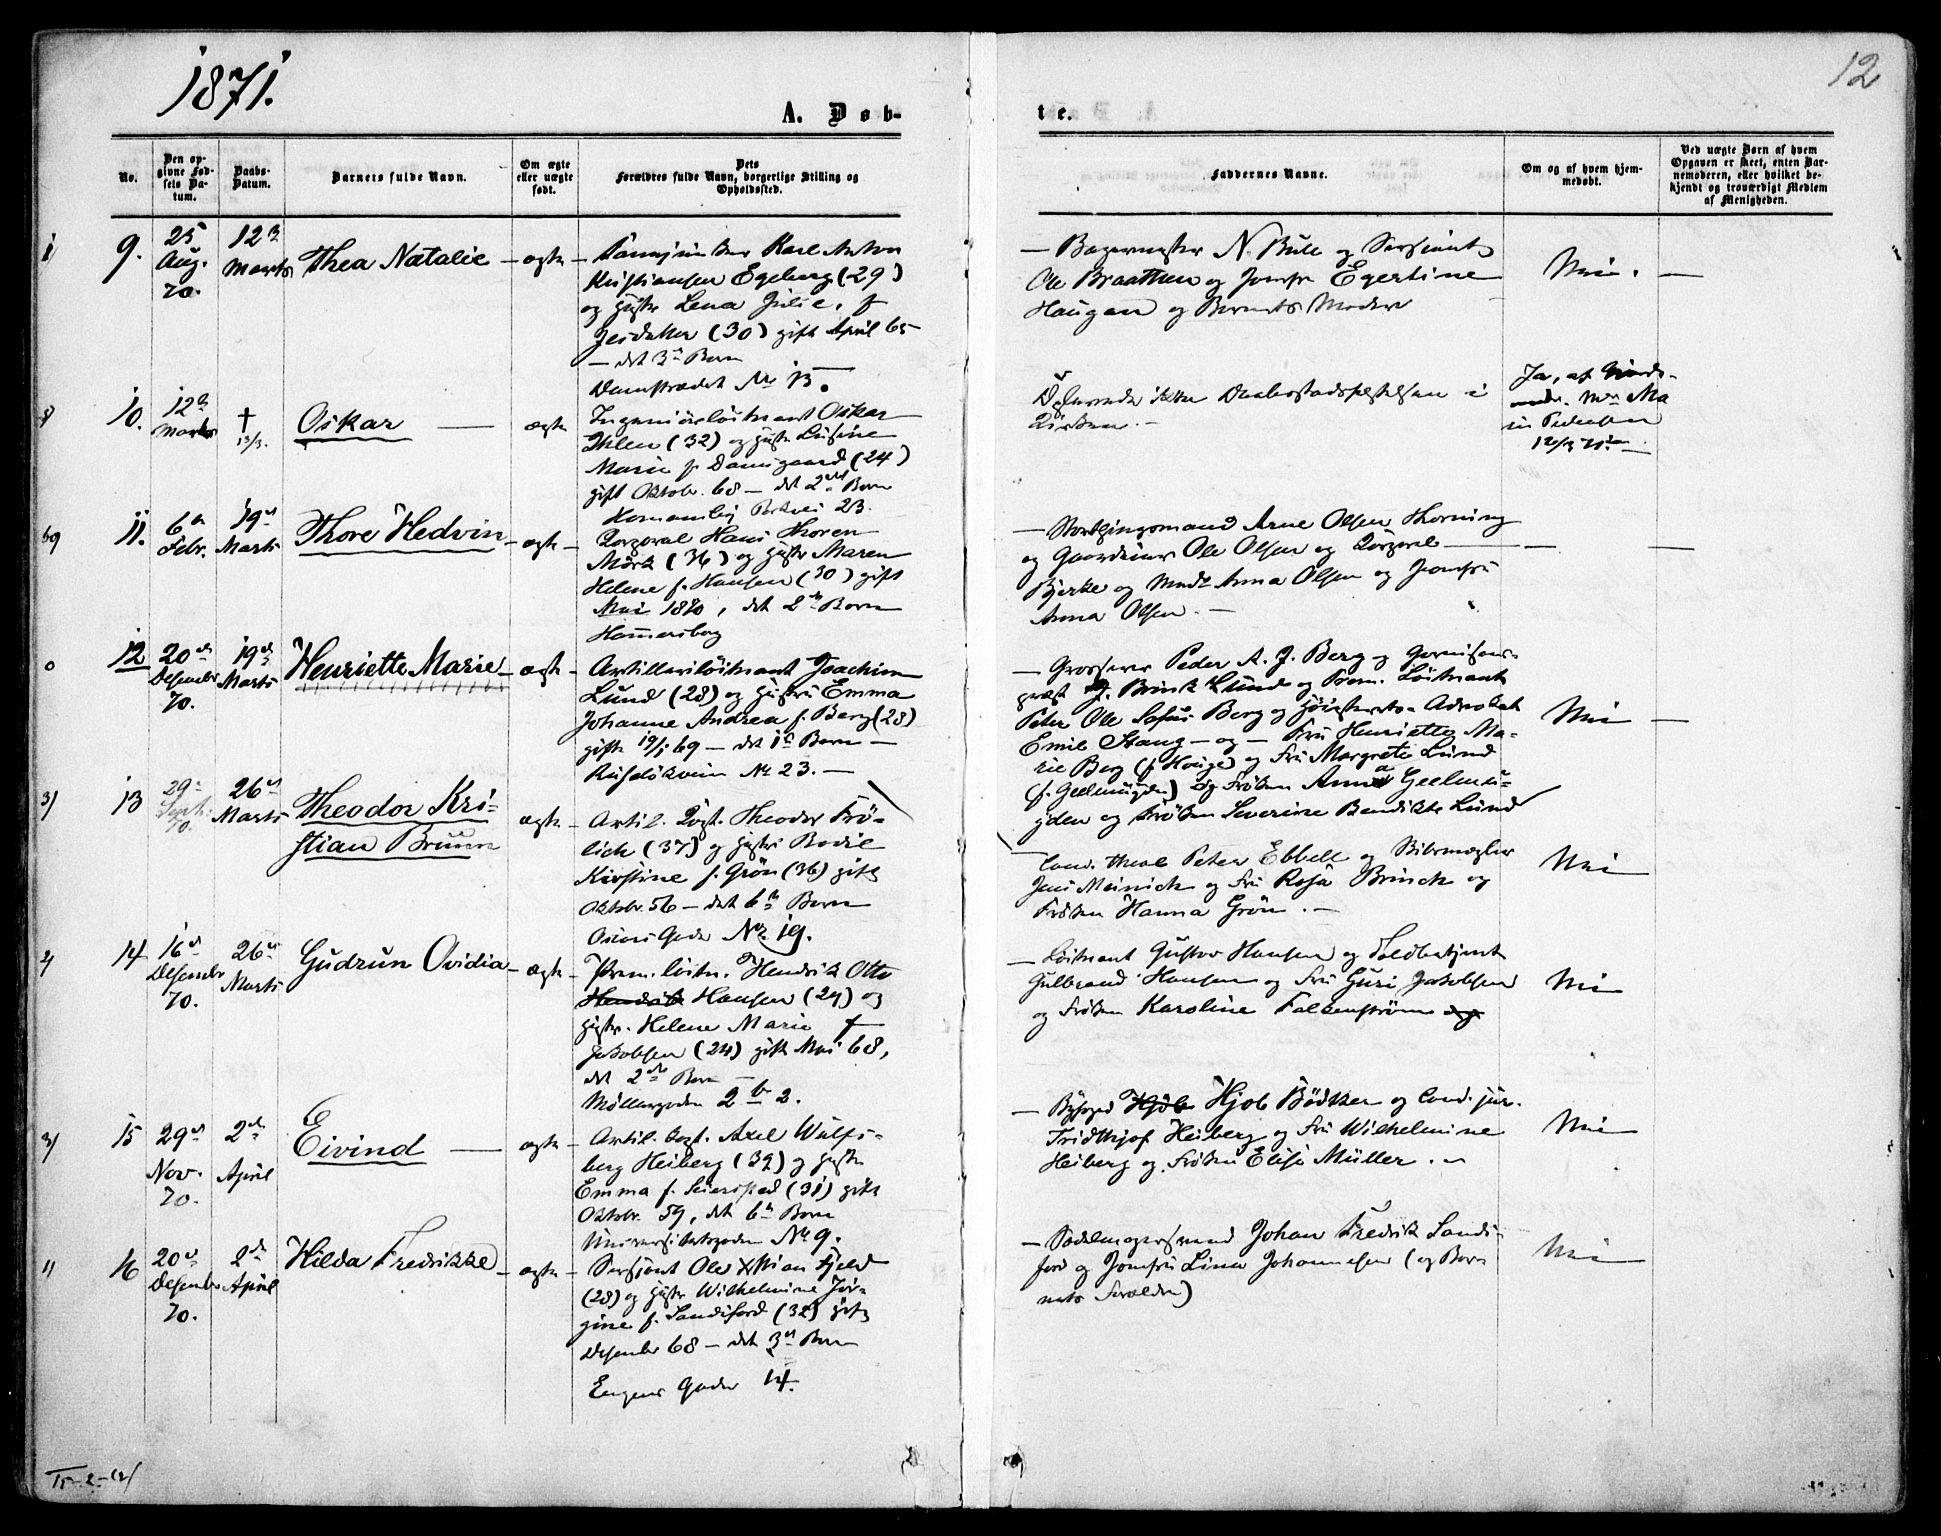 1871.
12
A. Døb-
te.
No.
Den op-
givne Fød-
sels Da-
tum.
Daabs-
Datum.
Barnets fulde Navn.
Om ægte
eller uægte
født.
Dets
Forældres fulde Navn, borgerlige Stilling og
Opholdssted.
Faddernes Navne.
Om og af hvem hjem-
medøbt.
Ved uægte Børn af hvem
Opgaven er skeet, enten Bar-
nemoderen, eller hvilket be-
kjendt og troværdigt Medlem
af Menigheden.
9.
25
Aug.
70.
12
Marts
Thea Natalie
ægte
Karl Anton
Kristiansen Egeberg (29)
og Lena Julie, f
(30) gift April 65
det 3 Barn
Damstrædet No 13.
N. Bull og Sersjant
Ole Braathen og Jomfr Egertine
Haugan og Barnets Moder
Nei.
10.
12
Marts
†
13/3.
Oskar
ægte
Ingeniørløitnant Oskar
Ihlen (32) og
Marie f. Damgaard (24)
gift Oktobr. 68 - det 2 Barn
23.
i
Kirken.
Ja, af
Ma
Pedersen
12/3 71
11.
6
Febr.
19
Marts
Thore Hedvin
ægte
Korporal Hans Thoren
Mørk (36) og Maren
Helene f. Hansen (30) gift
Mai 1870, det 2 Barn
Hammersborg
Stortingsmand Arne Olsen Thorning
og Ole Olsen og Korporal
Bjerke og Anna Olsen og Jomfru
Anna Olsen.
12
20
Desember
70.
19
Marts
Henriette Marie
ægte
Artilleriløitnant Joachim
Lund (28) og Hustru Emma
Johanne Andrea f. Berg (28)
gifte 19/1 69 - det 1 Barn
No 23.
Grosserer Peder A. J. Berg og Garnisons-
præst J. Brink Lund og Prem. Løitnant
Peter Ole Sofus Berg og Advokat
Emil Stang - og - Fru Henriette Ma-
rie Berg (f. Hauge) og Fru Margrete Lund
(f. Geelmuyden) og Frøken Anna Geelmu-
yden og Frøken Severine Bendikte Lund
Nei
13
29
70.
26
Marts
Theodor Kri-
stian Bruun
ægte
Artil. Kapt. Theodor Frø-
lich (37) og Hustru Bodil
Kirstine f. Grøn (36) gift
Oktobr. 56 - det 6 Barn
Oscars Gade No. 19.
Cand. theol Peter Ebbell og
Jens Meinich og Fru Rosa Brinck og
Frøken Hanna Grøn.
Nei
14
16
Desember
70.
26
Marts
Gudrun Ovidia
ægte
Prem. løitn. Henrik Otto
Hendrik Hansen (29) og
Helene Marie f
Jakobsen (24) gift Mai 68,
det 2 Barn
Møllergaden 2 b 2.
Løitnant Gustav Hansen og Toldbetjent
Gulbrand Hansen og Fru Guri Jakobsen
og Frøken Karoline Falkenstrøm og
Nei
15
29
Nov.
70.
2
April
Eivind
ægte
Artil. Kapt. Axel Wulfs-
berg Heiberg (39) og Hustru
Emma f. Seierssted (31) gift
Oktobr. 59, det 6 Barn
Universitetsgaden No 9.
Byfoged Hjob Hjob Bødtker og Cand. jur.
Fridthjof Heiberg og Fru Wilhelmine
Heiberg og Frøken Elise Müller.
Nei
16
20
Desember
70.
2
April
Hilda Fredrikke
ægte
Sersjant Ole Kristian Fjeld
(28) og Wilhelmine Jør-
gine f. Sandiford (32) gift
Desember 68 - det 3 Barn
Eugens Gade 14.
Sadelmagersvend Johan Fredrik Sandi-
ford og Jomfru Lina Johannesen (og Bar-
nets Forældre)
Nei